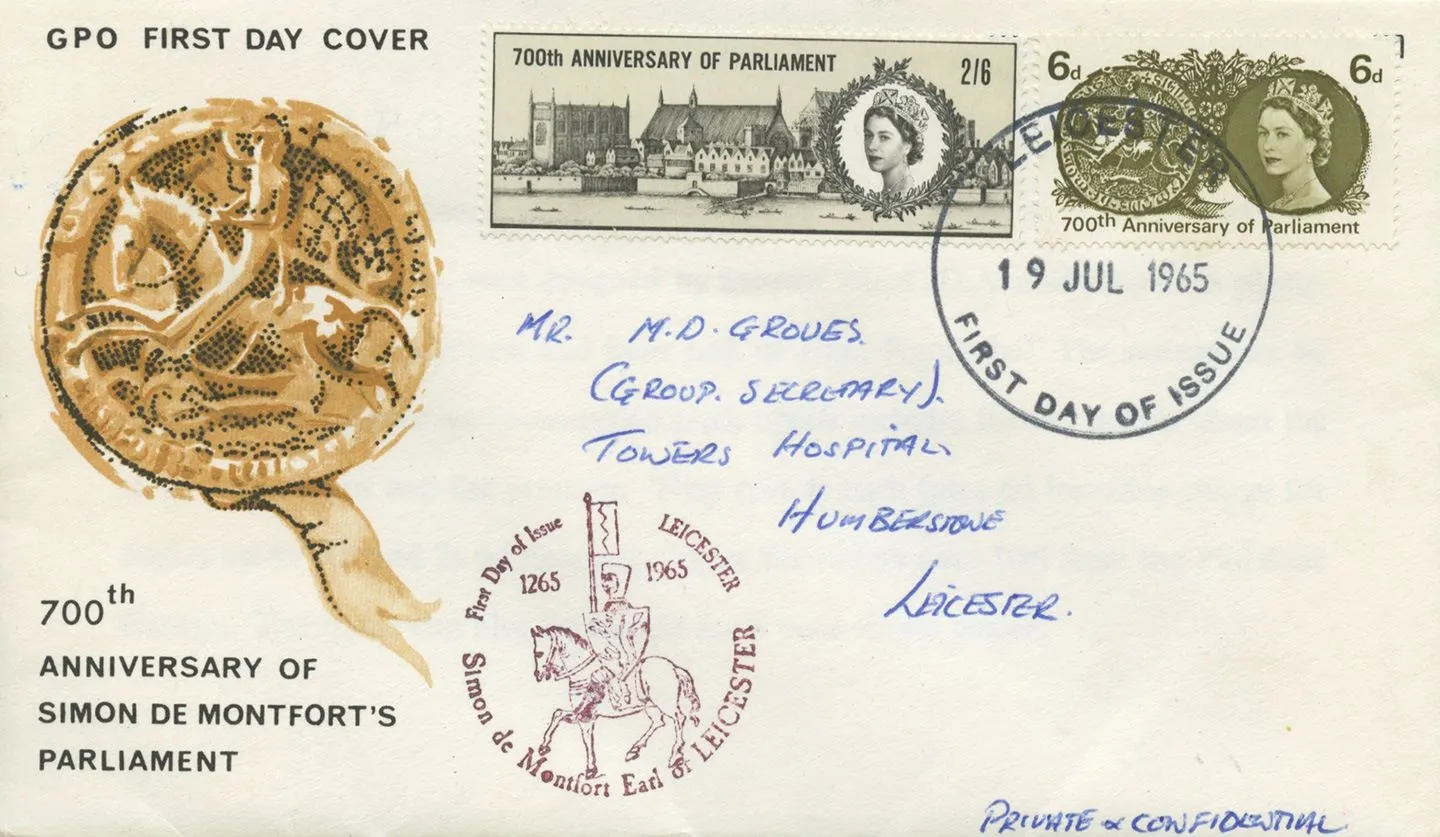 GPO FIRST DAY COVER
700th ANNIVERSARY OF PARLIAMENT
2/6
6d
6d
700th Anniversary of Parliament
LEICESTER
19 JUL 1965
FIRST DAY OF ISSUE
MR. M.D. GROVES.
(GROUP. SECRETARY).
TOWERS HOSPITAL,
HUMBERSTONE
LEICESTER.
First Day of Issue
LEICESTER
1265
1965
Simon de Montfort Earl of LEICESTER
700th
ANNIVERSARY OF
SIMON DE MONTFORT'S
PARLIAMENT
PRIVATE & CONFIDENTIAL.